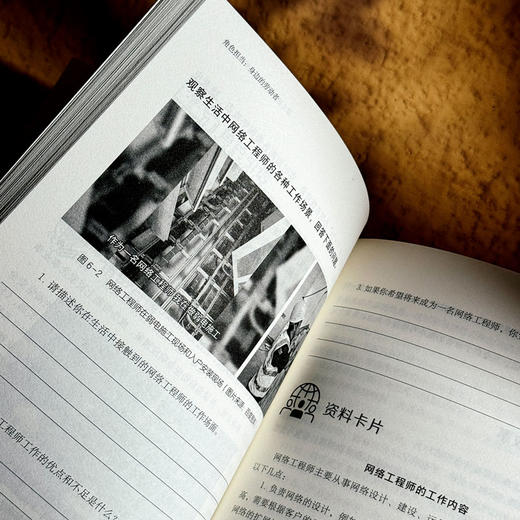 角色担当：身边的劳动者
观察生活中网络工程师的各种工作场景，回答下面的问题。
作为一名网络工程师我在做弱电施工
图6-2 网络工程师在弱电施工现场和入户安装现场（图片来源：百度
1. 请描述你在生活中接触到的网络工程师的工作场景。
工程师工作的优点和不足是什么？
3. 如果你希望将来成为一名网络工程师，你
资料卡片
网络工程师的工作内容
网络工程师主要从事网络设计、建设、运
以下几点：
1. 负责网络的设计，例如
高，需要根据客户的
网络的扩展